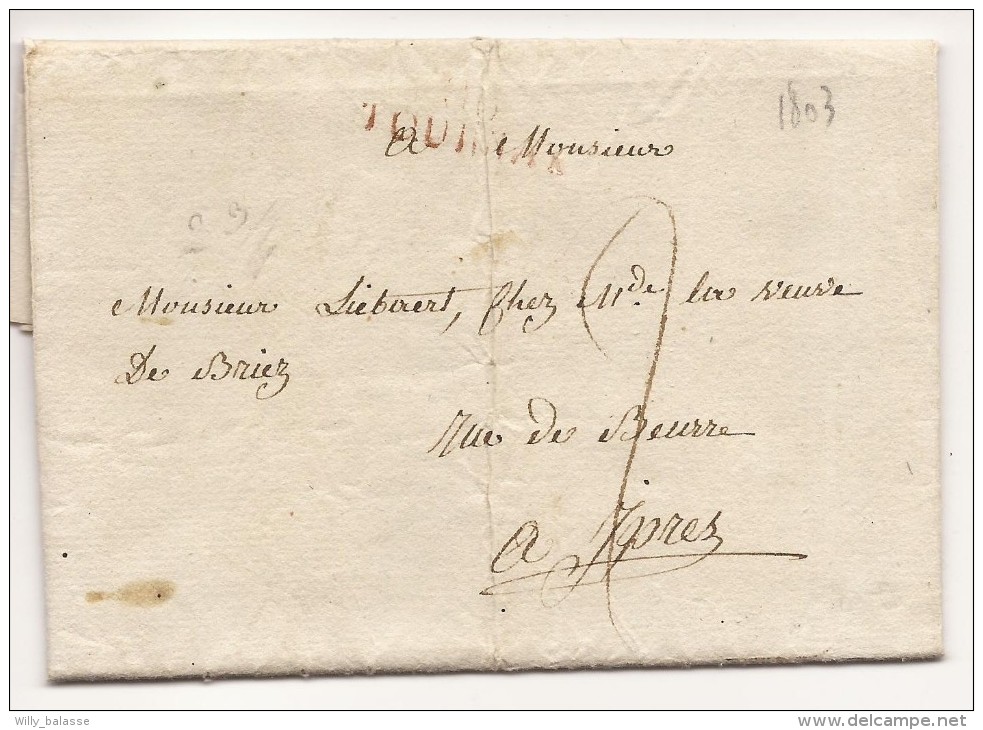 1803
TOURNAY
a Monsieur
Monsieur Liebaert, Chez Mde la veuve
De Briez
Rue de Beurre
a Ypres
Willy_balasse
www.delcampe.net